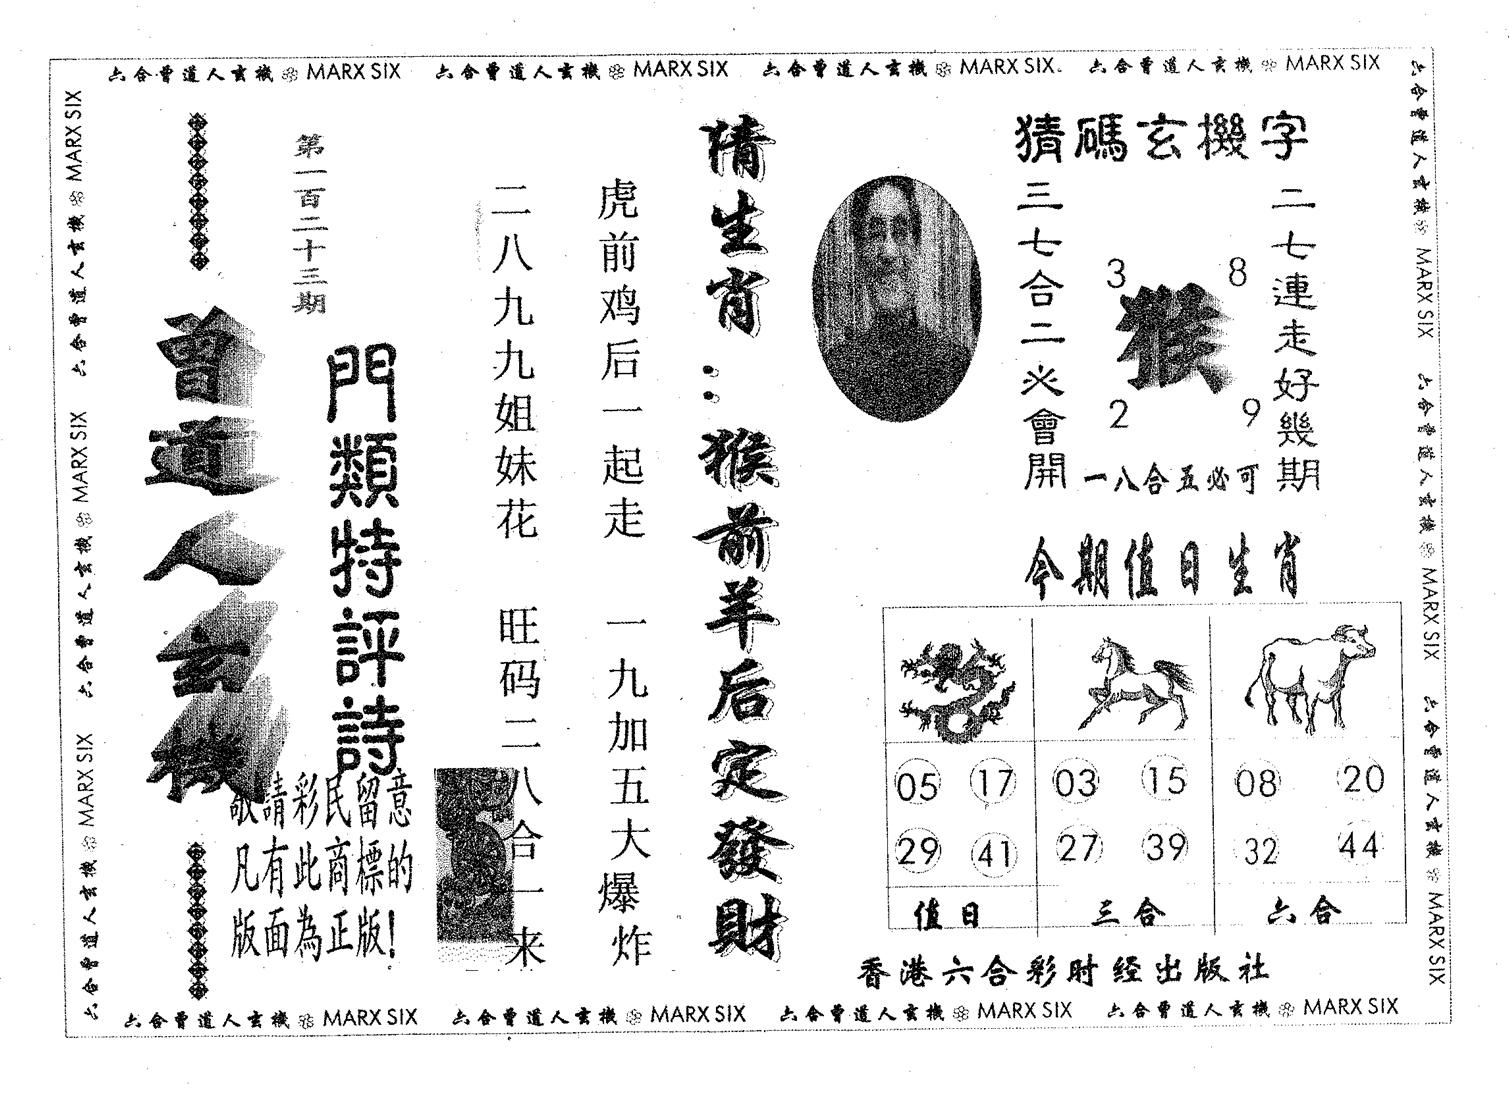 六合曾道人玄機 MARX SIX 六合曾道人玄機 MARX SIX 六合曾道人玄機 MARX SIX. 六合曾道人玄機 MARX SIX
六合曾道人玄機 MARX SIX 六合曾道人玄機 MARX SIX 六合曾道人玄機 MARX SIX
猜碼玄機字
二七連走好幾期
3 8
猴
2 9
三七合二必會開
一八合五必可
今期值日生肖
05 17 03 15 08 20
29 41 27 39 32 44
值日 三合 六合
香港六合彩时经出版社
猜生肖：猴前羊后定發財
虎前鸡后一起走 一九加五大爆炸
二八九九姐妹花 旺码二八合一来
第一百二十三期
門類特評詩
曾道人玄機
敬請彩民留意
凡有此商標的
版面為正版!
六合曾道人玄機 MARX SIX 六合曾道人玄機 MARX SIX 六合曾道人玄機 MARX SIX
六合曾道人玄機 MARX SIX 六合曾道人玄機 MARX SIX 六合曾道人玄機 MARX SIX 六合曾道人玄機 MARX SIX